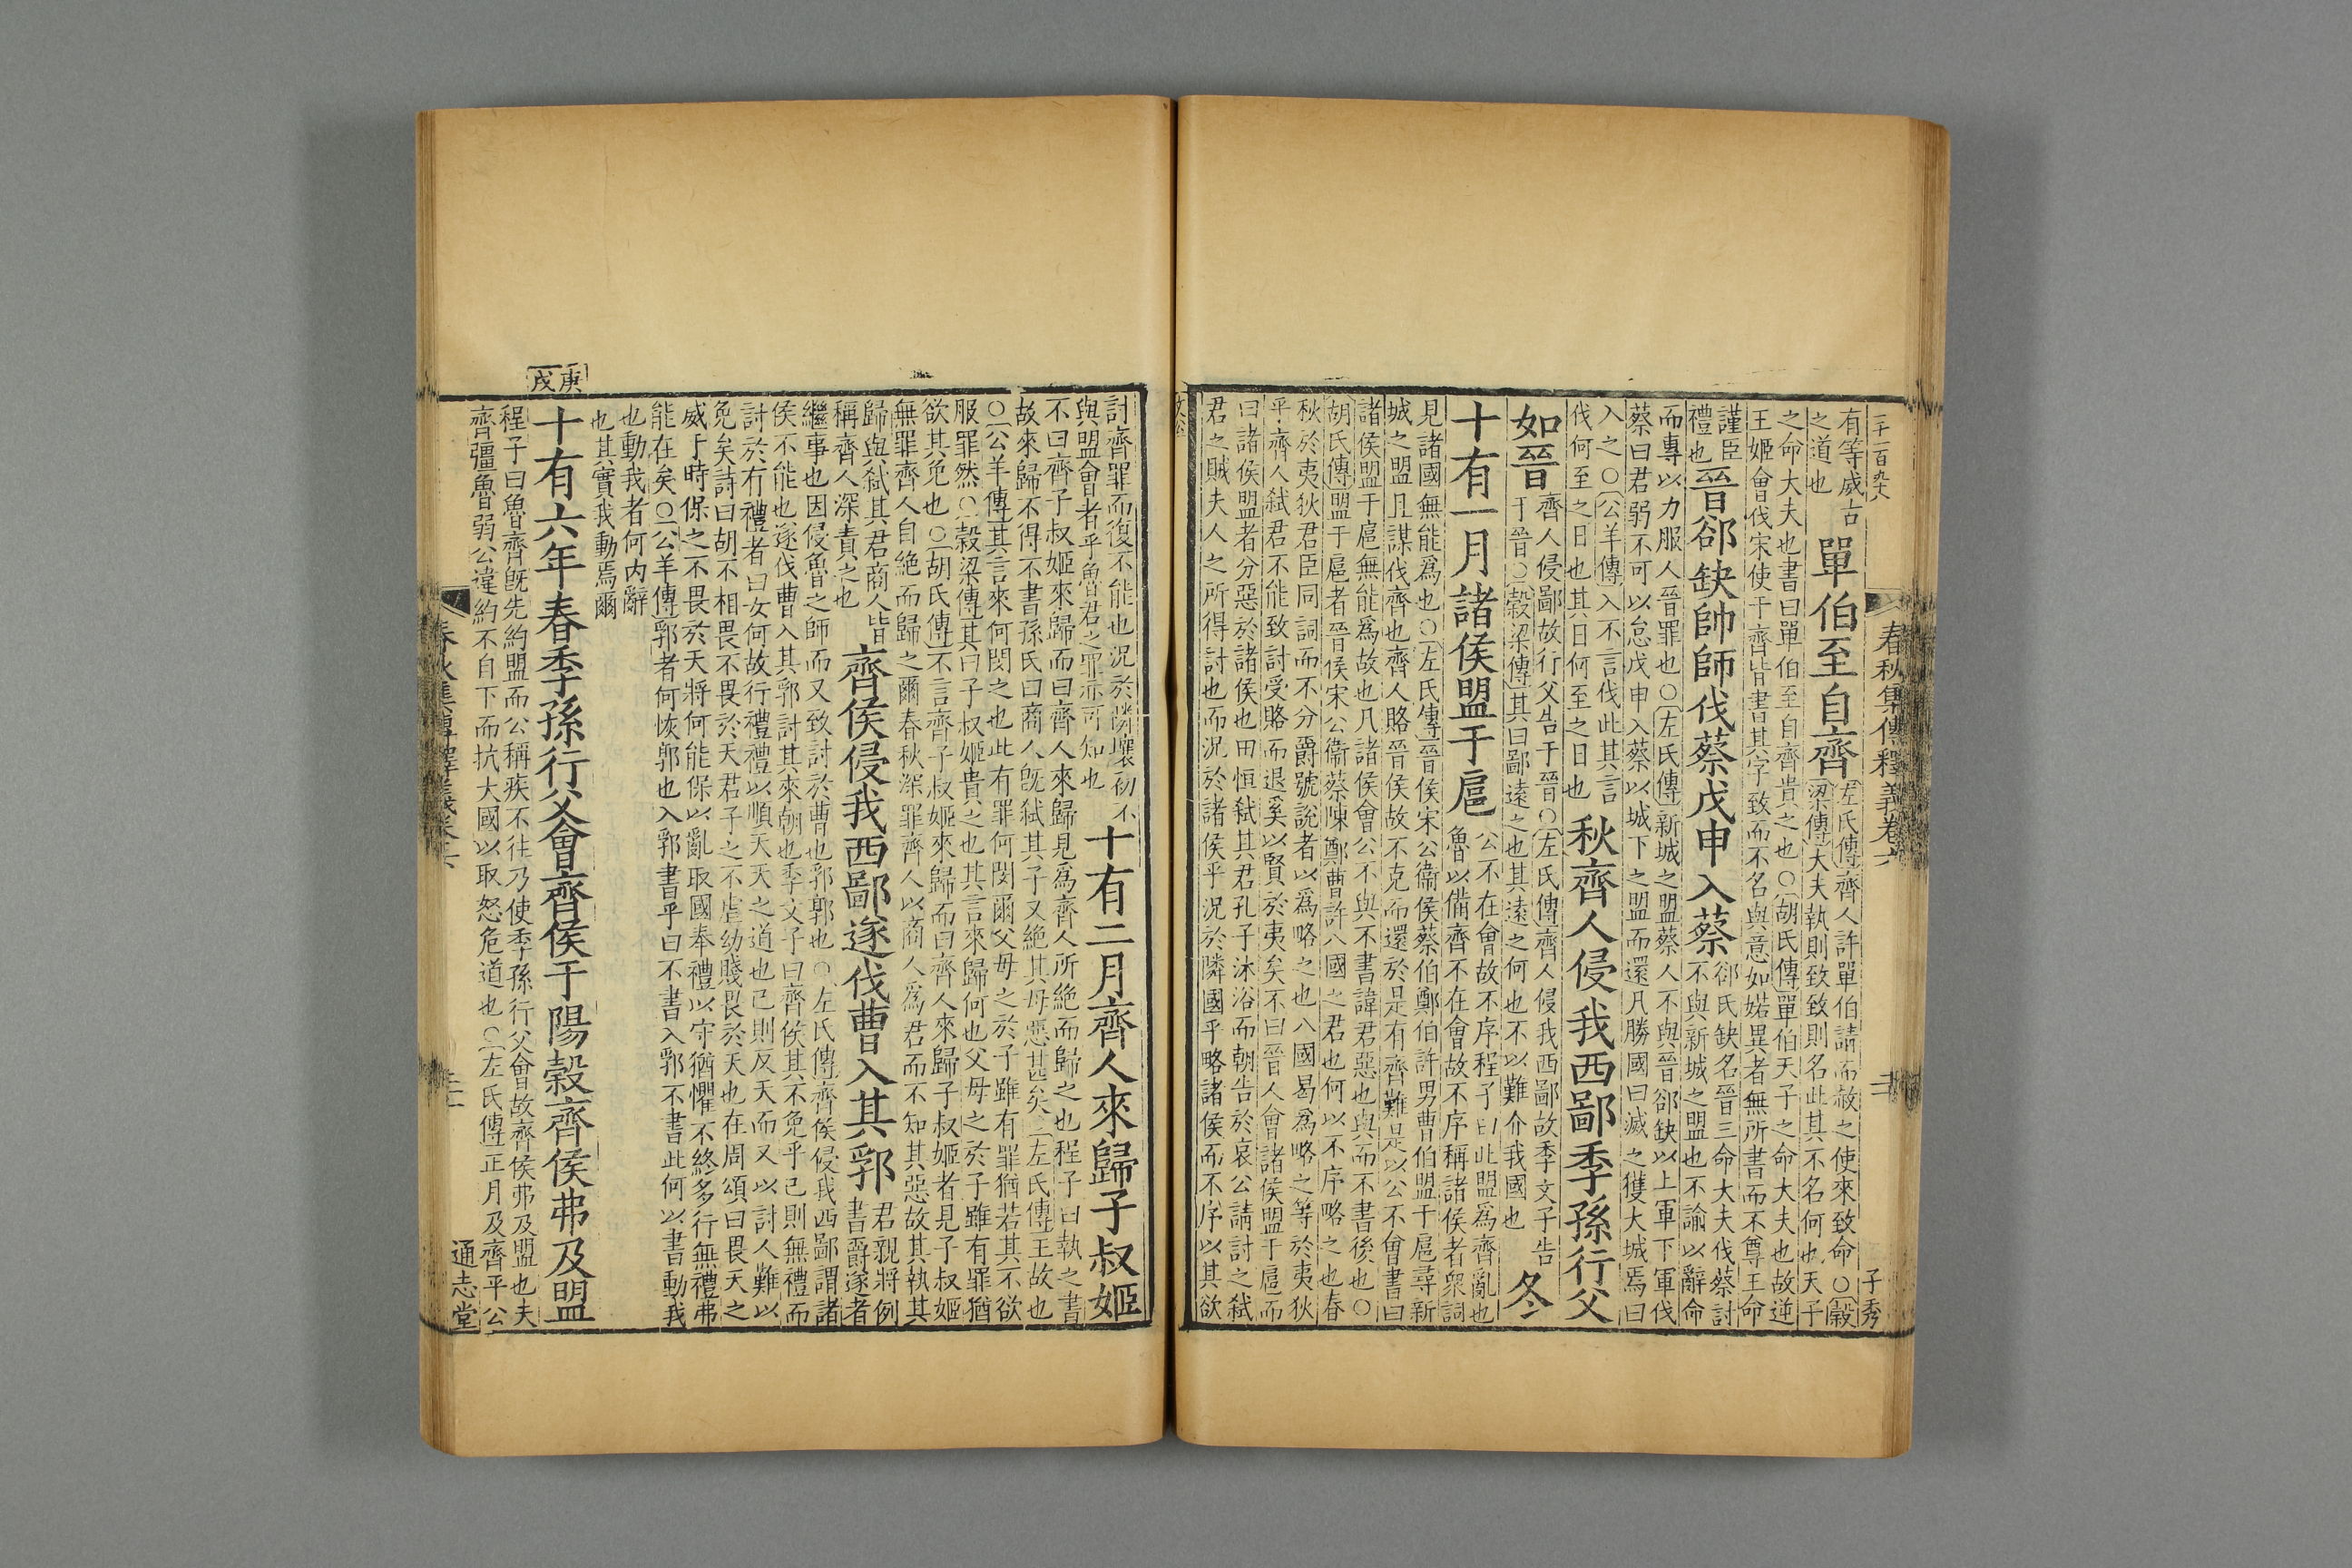 二千一百九十八
春秋集傳釋義卷六
二十
子秀
有等威古
之道也
單伯至自齊
左氏傳齊人許單伯請而赦之使來致命○穀
梁傳大夫執則致致則名此其不名何也天子
之命大夫也書曰單伯至自齊貴之也○胡氏傳單伯天子之命大夫也故逆
王姬會伐宋使于齊皆書其字致而不名與意如婼異者無所書而不尊王命
謹臣
禮也
晉郤缺帥師伐蔡戊申入蔡
郤氏缺名晉三命大夫伐蔡討
不與新城之盟也不諭以辭命
而專以力服人晉罪也○左氏傳新城之盟蔡人不與晉郤缺以上軍下軍伐
蔡曰君弱不可以怠戊申入蔡以城下之盟而還凡勝國曰滅之獲大城焉曰
入之○公羊傳入不言伐此其言
伐何至之日也其日何至之日也
秋齊人侵我西鄙季孫行父
如晉
齊人侵鄙故行父告于晉○左氏傳齊人侵我西鄙故季文子告
于晉○穀梁傳其曰鄙遠之也其遠之何也不以難介我國也
冬
十有一月諸侯盟于扈
公不在會故不序程子曰此盟爲齊亂也
魯以備齊不在會故不序稱諸侯者衆詞
見諸國無能爲也○左氏傳晉侯宋公衞侯蔡伯鄭伯許男曹伯盟于扈尋新
城之盟且謀伐齊也齊人賂晉侯故不克而還於是有齊難是以公不會書曰
諸侯盟于扈無能爲故也凡諸侯會公不與不書諱君惡也與而不書後也○
胡氏傳盟于扈者晉侯宋公衞蔡陳鄭曹許八國之君也何以不序略之也春
秋於夷狄君臣同詞而不分爵號說者以爲略之也八國曷爲略之等於夷狄
乎齊人弒君不能致討受賂而退奚以賢於夷矣不曰晉人會諸侯盟于扈而
曰諸侯盟者分惡於諸侯也田恒弒其君孔子沐浴而朝告於哀公請討之弒
君之賊夫人之所得討也而況於諸侯乎況於隣國乎略諸侯而不序以其欲
文公
討齊罪而復不能也況於隣壤初不
與盟會者乎魯君之罪亦可知也
十有二月齊人來歸子叔姬
不曰齊子叔姬來歸而曰齊人來歸見爲齊人所絶而歸之也程子曰執之書
故來歸不得不書孫氏曰商人旣弒其子又絶其母惡甚矣○左氏傳王故也
○公羊傳其言來何閔之也此有罪何閔爾父母之於子雖有罪猶若其不欲
服罪然○穀梁傳其曰子叔姬貴之也其言來歸何也父母之於子雖有罪猶
欲其免也○胡氏傳不言齊子叔姬來歸而曰齊人來歸子叔姬者見子叔姬
無罪齊人自絶而歸之爾春秋深罪齊人以商人爲君而不知其惡故其執其
歸與弒其君商人皆
稱齊人深責之也
齊侯侵我西鄙遂伐曹入其郛
君親將例
書爵遂者
繼事也因侵魯之師而又致討於曹也郛郭也○左氏傳齊侯侵我西鄙謂諸
侯不能也遂伐曹入其郛討其來朝也季文子曰齊侯其不免乎己則無禮而
討於有禮者曰女何故行禮禮以順天天之道也己則反天而又以討人難以
免矣詩曰胡不相畏不畏於天君子之不虐幼賤畏於天也在周頌曰畏天之
威于時保之不畏於天將何能保以亂取國奉禮以守猶懼不終多行無禮弗
能在矣○公羊傳郛者何恢郭也入郛書乎曰不書入郛不書此何以書動我
也動我者何內辭
也其實我動焉爾
庚戌
十有六年春季孫行父會齊侯于陽穀齊侯弗及盟
程子曰魯齊旣先約盟而公稱疾不往乃使季孫行父會故齊侯弗及盟也夫
齊彊魯弱公違約不自下而抗大國以取怒危道也○左氏傳正月及齊平公
春秋集傳釋義卷六
二十一
通志堂